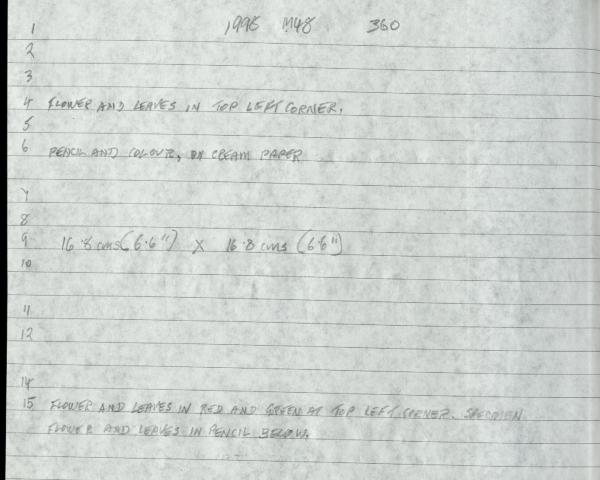 1 1998 M48 360
2
3
4 FLOWER AND LEAVES IN TOP LEFT CORNER.
5
6 PENCIL AND COLOUR, ON CREAM PAPER
7
8
9 16.8 cms (6.6") X 16.8 cms (6.6")
10
11
12
14
15 FLOWER AND LEAVES IN RED AND GREEN AT TOP LEFT CORNER. SPECIMEN
FLOWER AND LEAVES IN PENCIL BELOW.